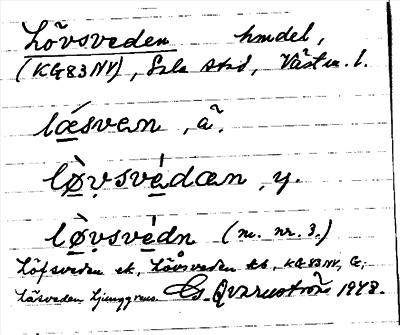 Lövsveden hmdel,
(KG83NV), Sala stad, Västm. l.
læsven, ä.
lø̀vsvédæn, y.
lø̀vsvèdn (m. nr. 3.)
Löfsveden ek, Lövsveden tk, KG83NV, G;
Läsveden Ljunggren. Gs. Qvarnström 1948.